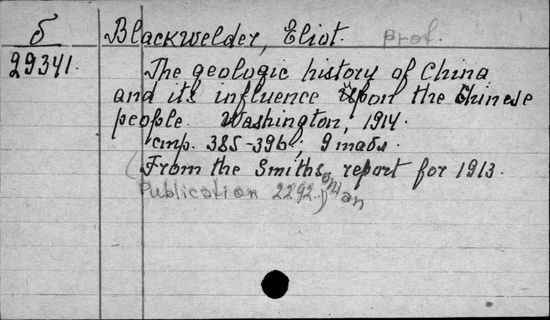 б Blackwelder, Eliot. prof.
29341. The geologic history of China
and its influence upon the Chinese
people. Washington, 1914.
стр. 385-396; 9 табл.
(From the Smithsonian report for 1913.
Publication 2292.)